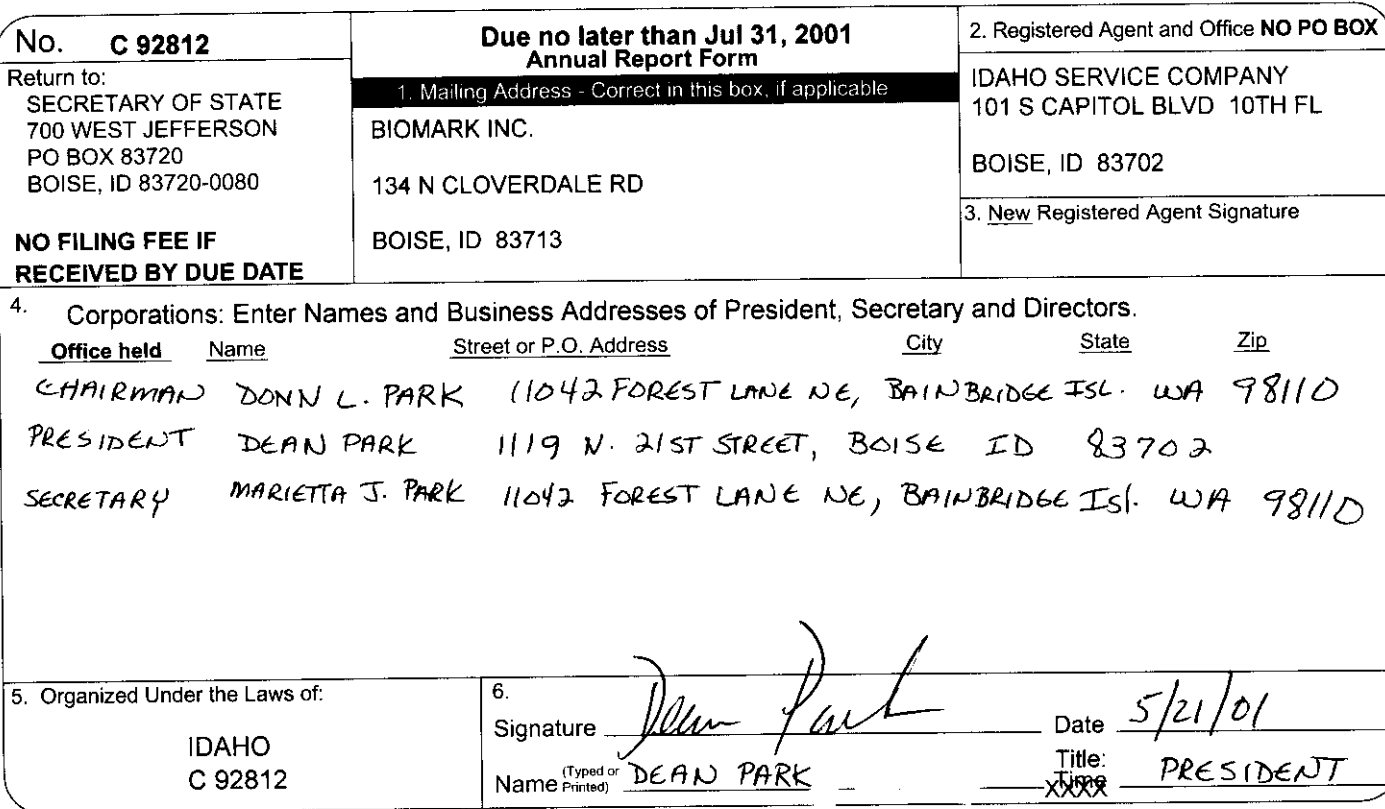 No. C 92812
Return to:
SECRETARY OF STATE
700 WEST JEFFERSON
PO BOX 83720
BOISE, ID 83720-0080
NO FILING FEE IF
RECEIVED BY DUE DATE
Due no later than Jul 31, 2001
Annual Report Form
1. Mailing Address - Correct in this box, if applicable
BIOMARK INC.
134 N CLOVERDALE RD
BOISE, ID 83713
2. Registered Agent and Office NO PO BOX
IDAHO SERVICE COMPANY
101 S CAPITOL BLVD 10TH FL
BOISE, ID 83702
3. New Registered Agent Signature
4. Corporations: Enter Names and Business Addresses of President, Secretary and Directors.
Office held Name Street or P.O. Address City State Zip
CHAIRMAN DONN L. PARK 11042 FOREST LANE NE, BAINBRIDGE ISL. WA 98110
PRESIDENT DEAN PARK 1119 N. 21ST STREET, BOISE ID 83702
SECRETARY MARIETTA J. PARK 11042 FOREST LANE NE, BAINBRIDGE Isl. WA 98110
5. Organized Under the Laws of:
IDAHO
C 92812
6.
Signature Dean Park Date 5/21/01
Name (Typed or Printed) DEAN PARK Title: PRESIDENT
Time